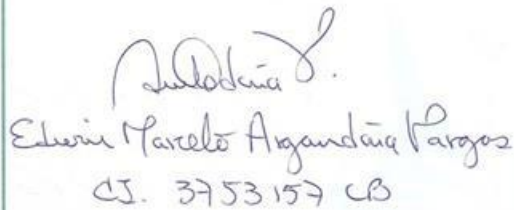 Edwin Marcelo Argandoña Vargas
CI. 3753157 CB